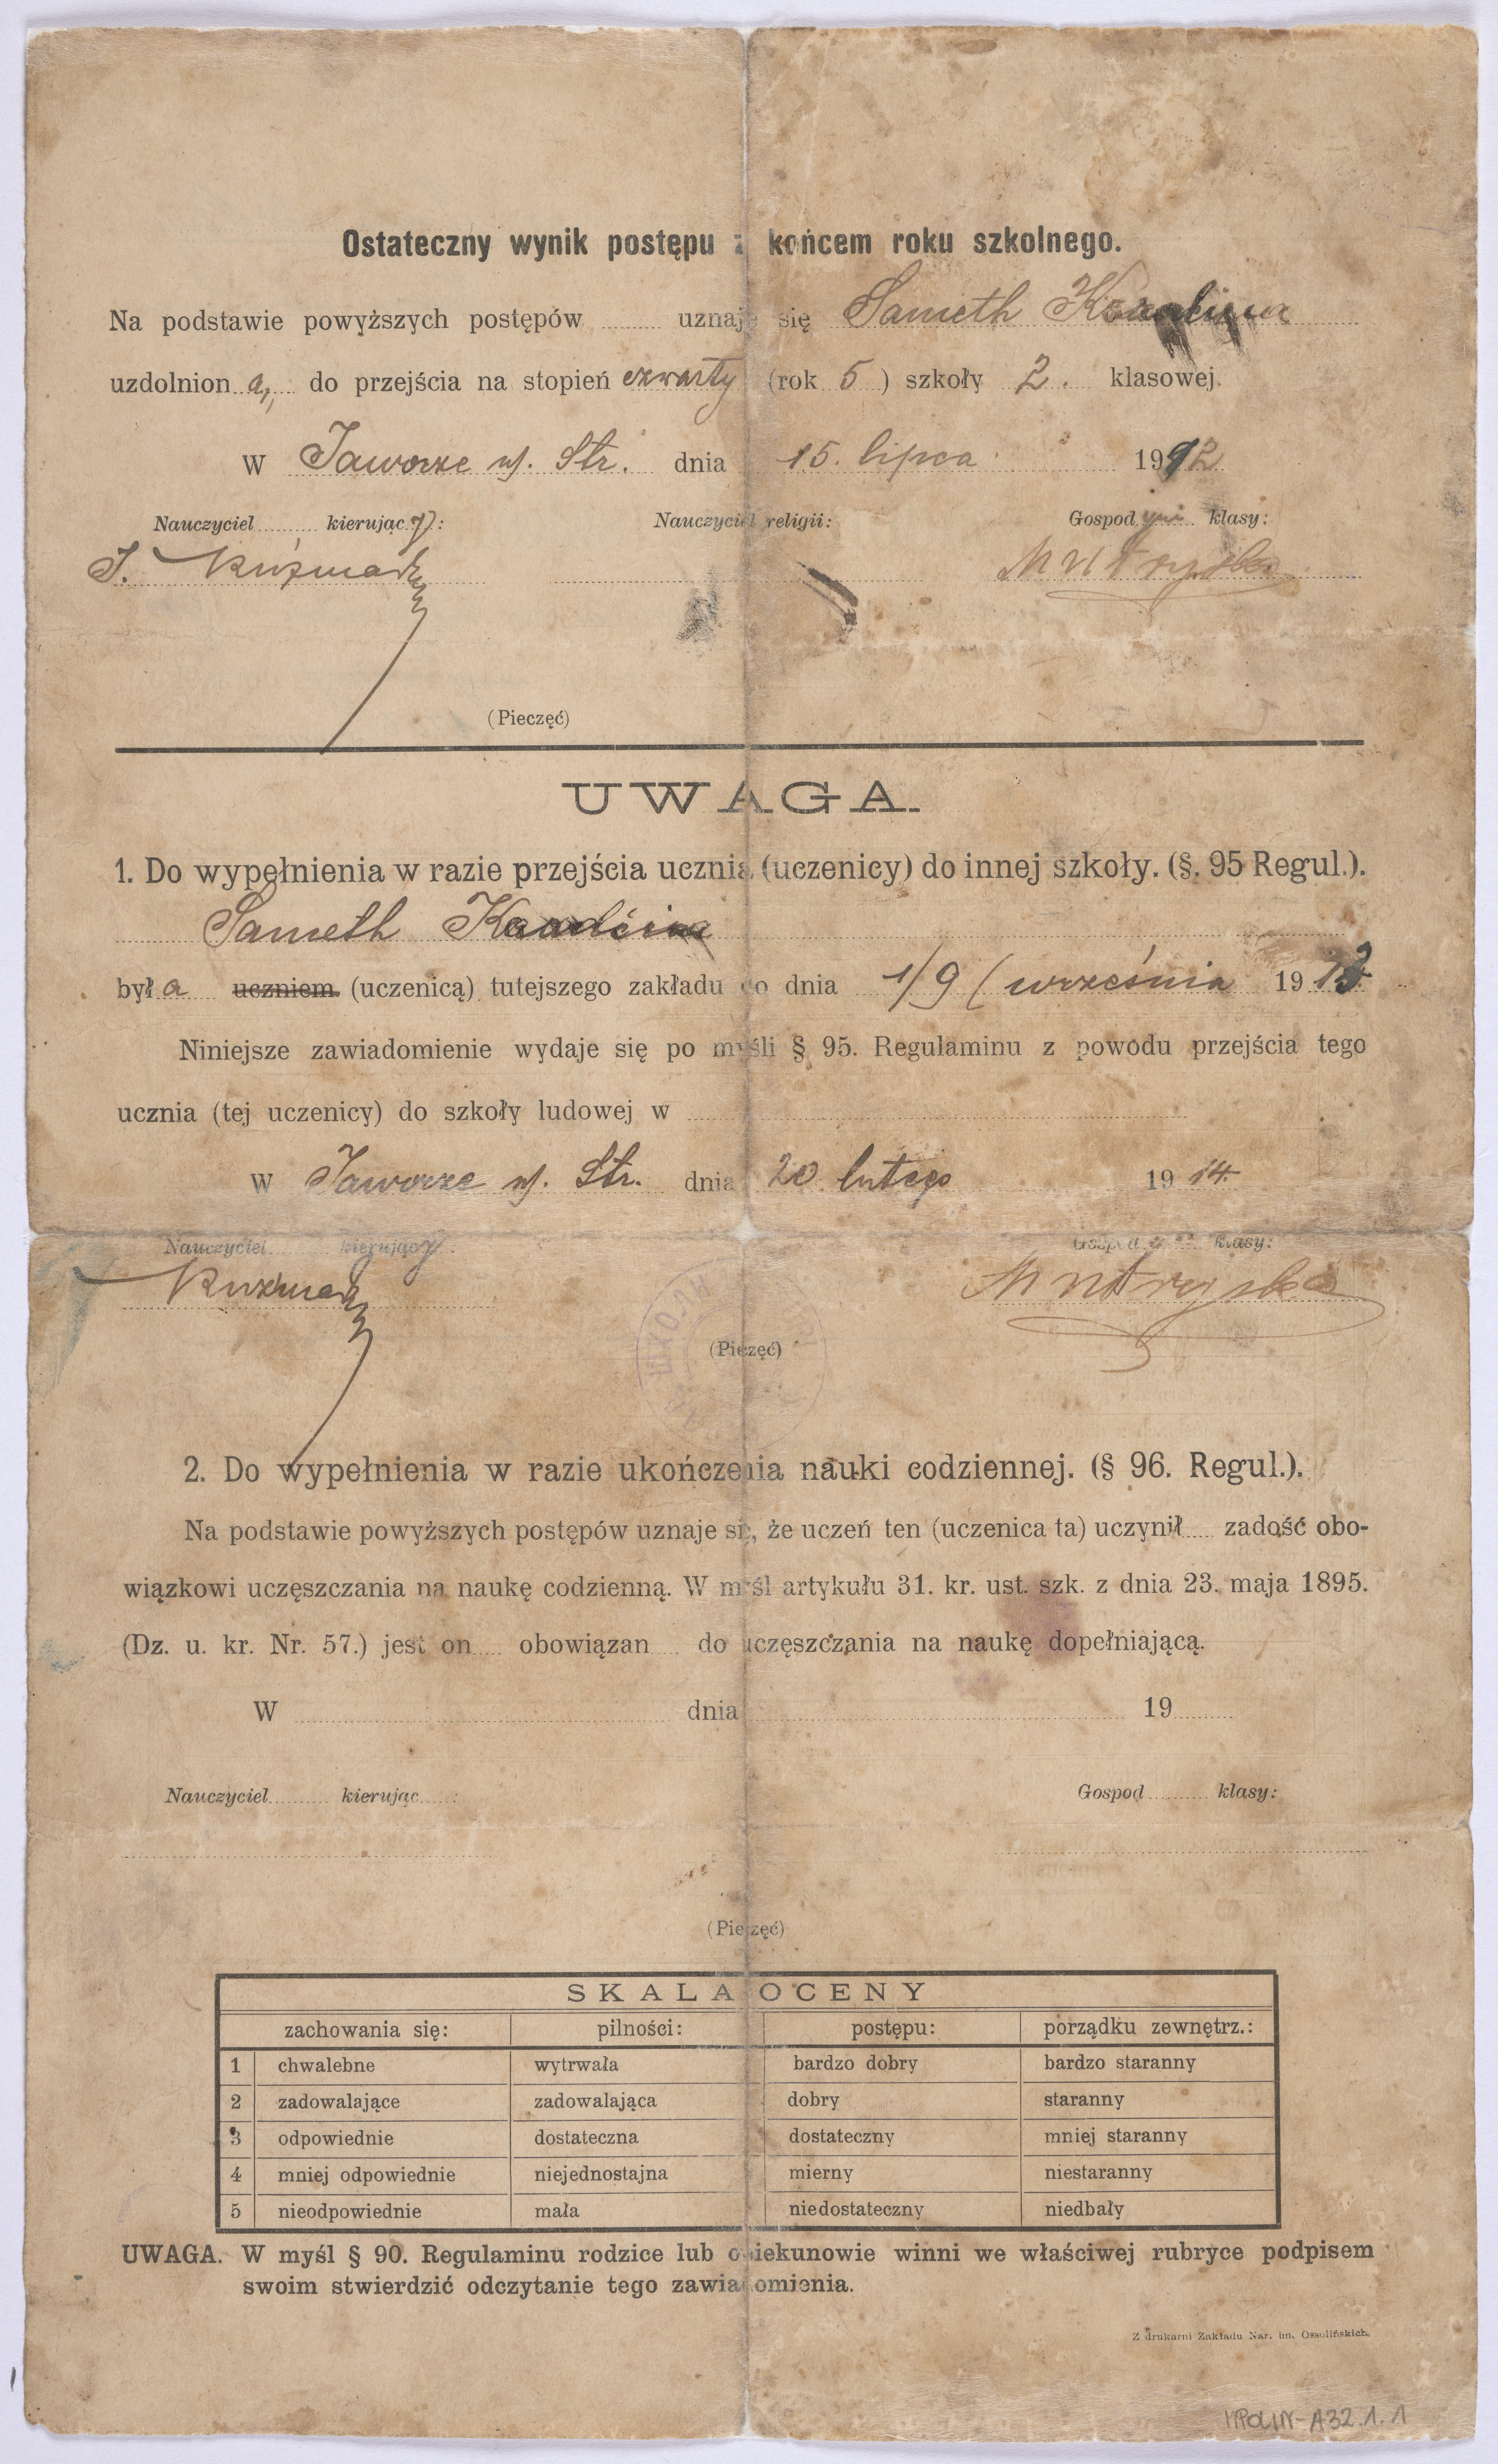 Ostateczny wynik postępu z końcem roku szkolnego.
Na podstawie powyższych postępów uznaje się Sameth
uzdolnion a, do przejścia na stopień czwarty (rok 5) szkoły 2. klasowej.
W Jaworze n/. Str. dnia 15. lipca 1912
Nauczyciel kierując y: Nauczyciel religii: Gospod yni klasy:
J. Kuźmar
(Pieczęć)
UWAGA.
1. Do wypełnienia w razie przejścia ucznia (uczenicy) do innej szkoły. (§. 95 Regul.).
Sameth
był a uczniem (uczenicą) tutejszego zakładu do dnia 1/9 (września 1913
Niniejsze zawiadomienie wydaje się po myśli § 95. Regulaminu z powodu przejścia tego
ucznia (tej uczenicy) do szkoły ludowej w
W Jaworze n/. Str. dnia 20 lutego 1914.
Nauczyciel kierujący Gospod klasy:
ШКОЛИ
(Pieczęć)
2. Do wypełnienia w razie ukończenia nauki codziennej. (§ 96. Regul.).
Na podstawie powyższych postępów uznaje się, że uczeń ten (uczenica ta) uczynił zadość obo-
wiązkowi uczęszczania na naukę codzienną. W myśl artykułu 31. kr. ust. szk. z dnia 23. maja 1895.
(Dz. u. kr. Nr. 57.) jest on obowiązan do uczęszczania na naukę dopełniającą.
W dnia 19
Nauczyciel kierując : Gospod klasy:
(Pieczęć)
SKALA OCENY
zachowania się: pilności: postępu: porządku zewnętrz.:
1 chwalebne wytrwała bardzo dobry bardzo staranny
2 zadowalające zadowalająca dobry staranny
3 odpowiednie dostateczna dostateczny mniej staranny
4 mniej odpowiednie niejednostajna mierny niestaranny
5 nieodpowiednie mała niedostateczny niedbały
UWAGA. W myśl § 90. Regulaminu rodzice lub opiekunowie winni we właściwej rubryce podpisem
swoim stwierdzić odczytanie tego zawiadomienia.
Z drukarni Zakładu Nar. im. Ossolińskich.
MPOLIN-A32.1.1